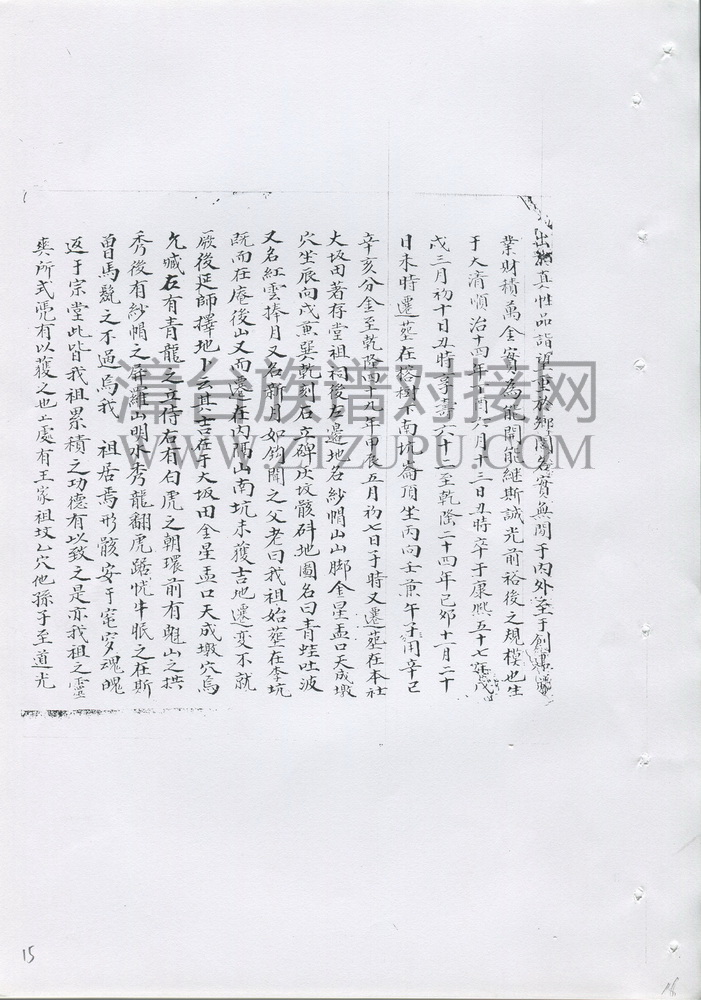 出於真性品詣望重於鄉閭名實無間于內外至于創
業財積萬金實為能開能繼斯誠光前裕後之規模也生
于大清順治十四年丁酉六月十三日丑時卒于康熙五十七年戊
戌三月初十日丑時享壽六十二至乾隆二十四年己卯十一月二十
日未時遷葬在榕樹下南坑崙頂坐丙向壬兼午子用辛巳
辛亥分金至乾隆四十九年甲辰五月初七日子時又遷葬在本社
大坂田著存堂祖祠後左邊地名紗帽山山脚金星盂口天成墩
穴坐辰向戌兼巽乾刻石立碑灰坂骸砵地圖名曰青蛙吐波
又名紅雲捧月又名新月如鈎聞之父老曰我祖始葬在李坑
既而在庵後山又而遷在內隔山南坑未獲吉地遷变不就
厥後延師擇地卜云其吉在于大坂田金星盂口天成墩穴焉
允臧左有青龍之立侍右有白虎之朝環前有魁山之拱
秀後有紗帽之屏羅山明水秀龍翻虎踞恍牛眠之在斯
曽馬鬣之不過焉我 祖居焉形骸安于窀穸魂魄
返于宗堂此皆我祖累積之功德有以致之是亦我祖之靈
爽所式憑有以獲之也上處有王家祖坟乙穴他孫子至道光
滬台族谱对接网
WWW.ZTZUPU.COM
15
16